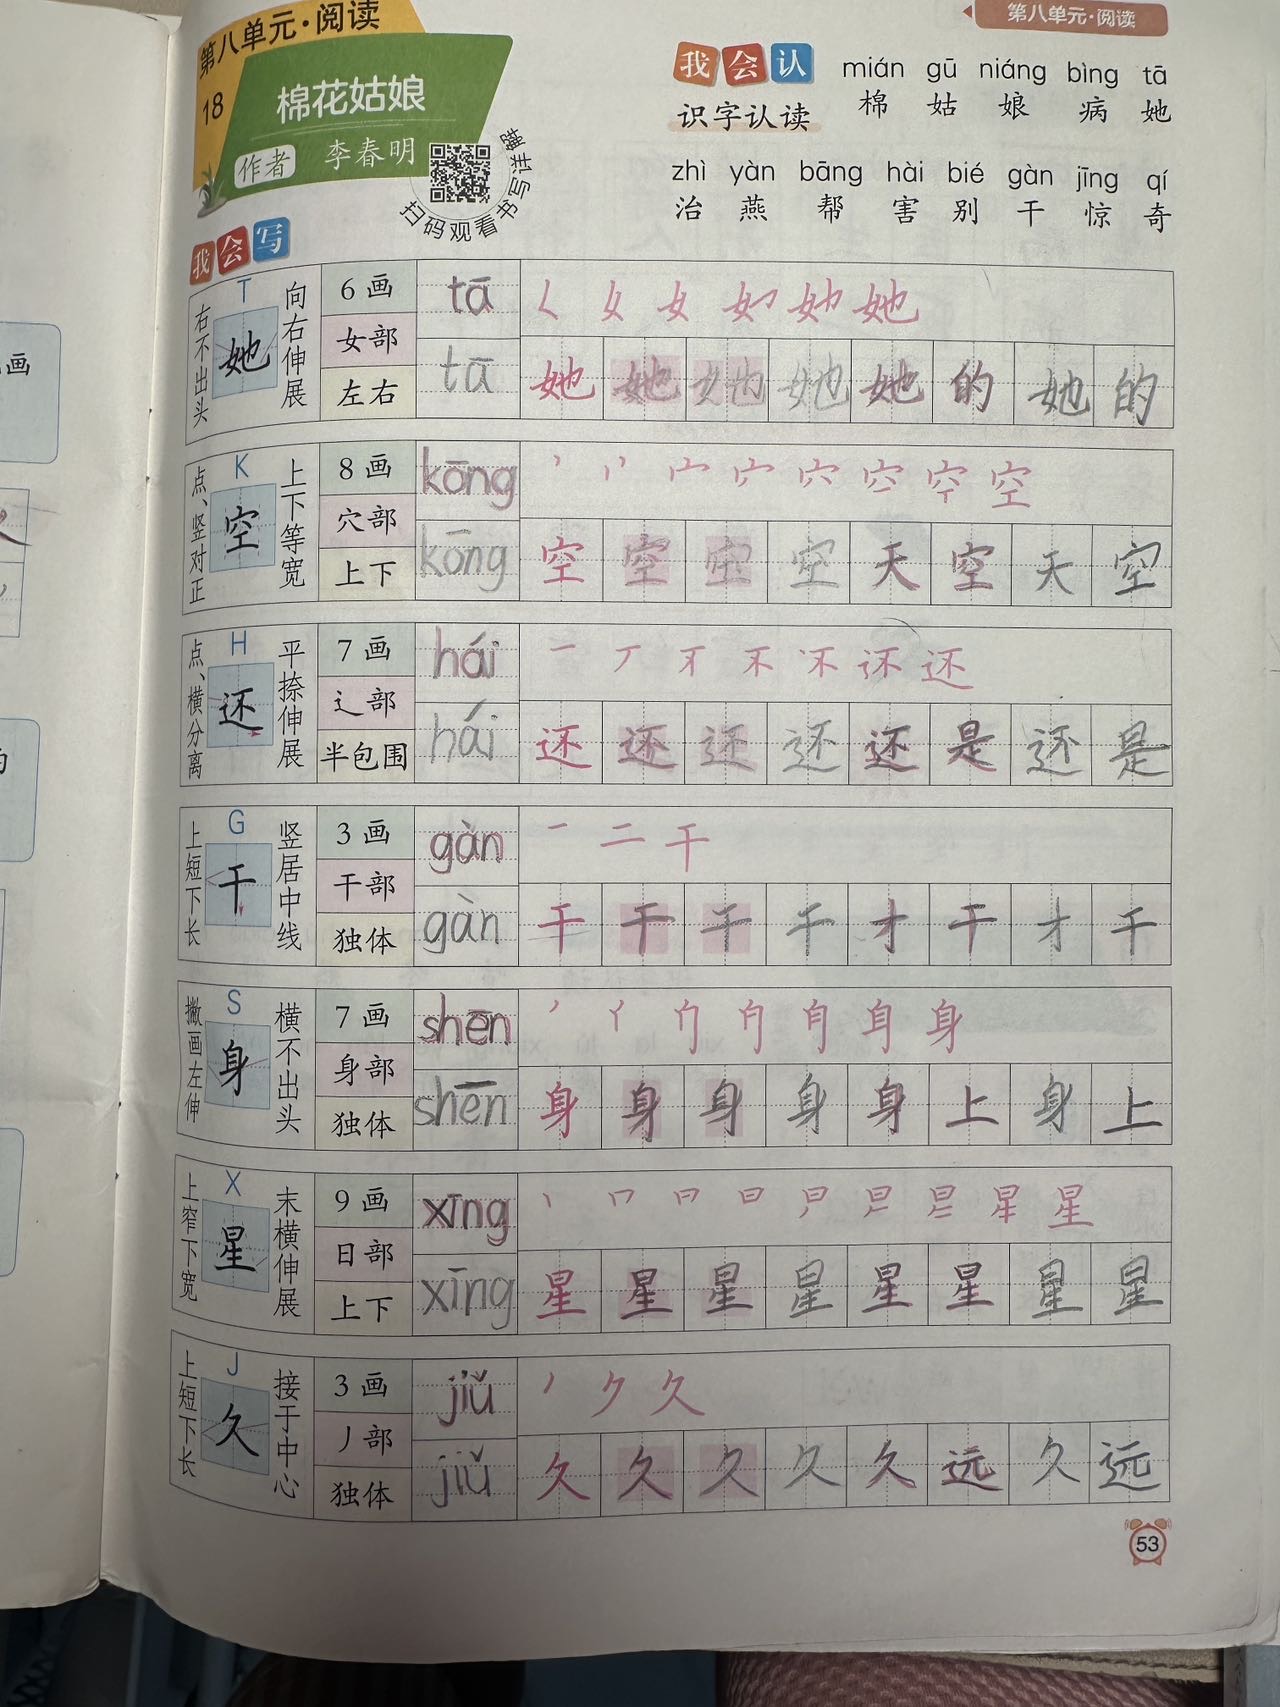 第八单元·阅读
第八单元·阅读
18
棉花姑娘
作者 李春明
扫码观看书写详解
我会认
识字认读
mián gū niáng bìng tā
棉 姑 娘 病 她
zhì yàn bāng hài bié gàn jīng qí
治 燕 帮 害 别 干 惊 奇
我会写
T
右不出头
她
向右伸展
6画
女部
左右
tā
tā
𡿨 女 女 她 她 她
她 她 她 她 她 的 她 的
K
点、竖对正
空
上下等宽
8画
穴部
上下
kōng
kōng
空
空 空 空 空 天 空 天 空
H
点、横分离
还
平捺伸展
7画
辶部
半包围
hái
hái
一 丆 不 不 还 还
还 还 还 还 还 是 还 是
G
上短下长
干
竖居中线
3画
干部
独体
gàn
gàn
一 二 干
干 干 干 干 才 干 才 干
S
撇画左伸
身
横不出头
7画
身部
独体
shēn
shēn
身
身 身 身 身 身 上 身 上
X
上窄下宽
星
末横伸展
9画
日部
上下
xīng
xīng
丶 口 日 日 星
星 星 星 星 星 星 星 星
J
上短下长
久
接于中心
3画
丿部
独体
jiǔ
jiǔ
丿 ク 久
久 久 久 久 久 远 久 远
53
画